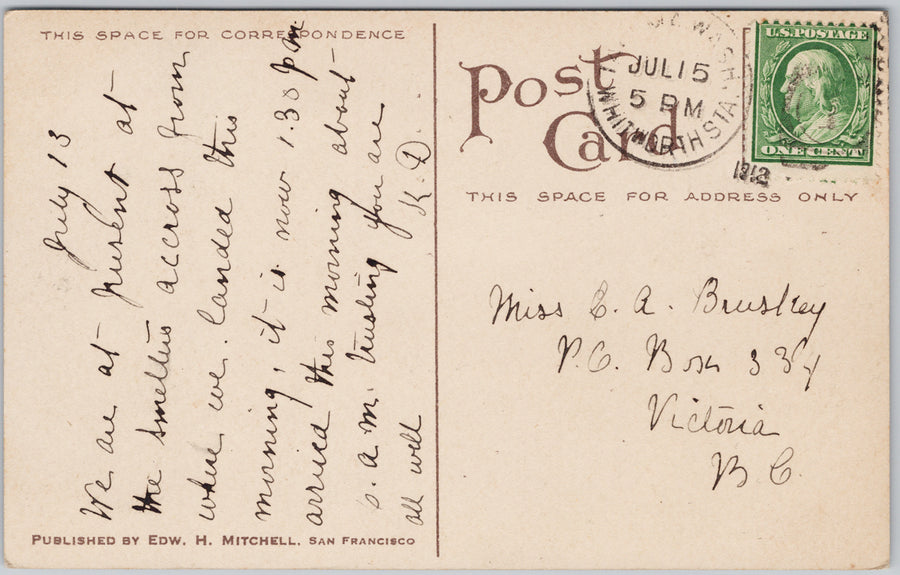 THIS SPACE FOR CORRESPONDENCE
July 13
We are at present at
the smelters accross from
where we landed this
morning, it is now 1.30 pm
arried this morning about
a.m. trusting you are
all well K. D.
PUBLISHED BY EDW. H. MITCHELL, SAN FRANCISCO
Post
Card
WASH.
JUL 15
5 PM
WHITWORTH STA.
1912
U.S. POSTAGE
ONE CENT
THIS SPACE FOR ADDRESS ONLY
Miss C. A. Bruskey
P.O. Box
Victoria
B C.